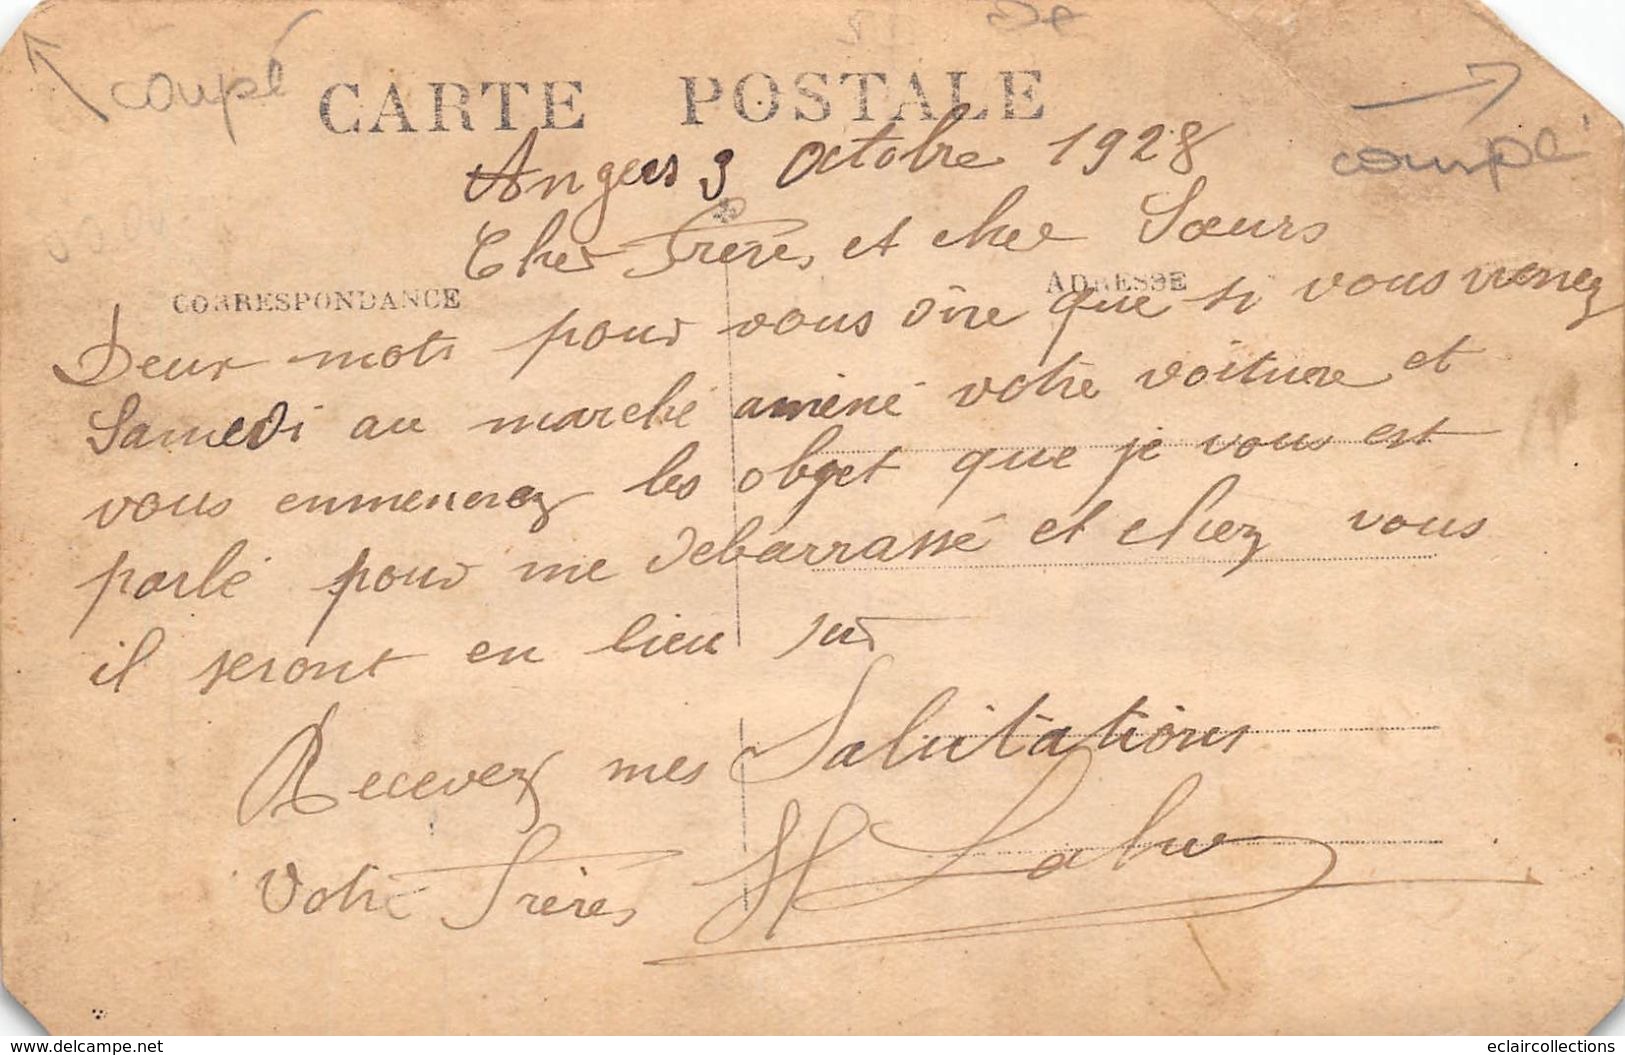 coupé
CARTE POSTALE
coupé
Angers 3 Octobre 1928
Cher Frères et cher Sœurs
CORRESPONDANCE
ADRESSE
Deux mots pour vous dire que si vous venez
Samedi au marché améné votre voiture et
vous enmenerez les objet que je vous est
parlé pour me debarrassé et chez vous
il seront en lieu sur
Recevez mes Salutations
Votre Frères H
www.delcampe.net
eclaircollections